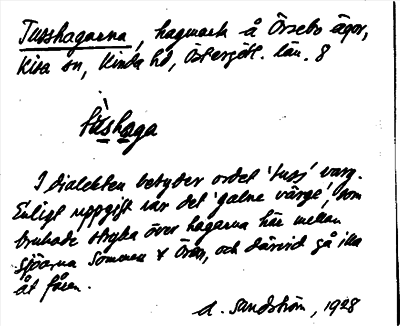 Tusshagarna, hagmark å Örsebo ägor,
Kisa sn, Kinda hd, Östergötl. län. 8
tùshaga
I dialekten betyder ordet 'tuss' varg.
Enligt uppgift var det 'galne värge', som
brukade stryka över hagarna här mellan
sjöarna Sommen & Ören, och därvid gå illa
åt fåren.
A. Sandström, 1928